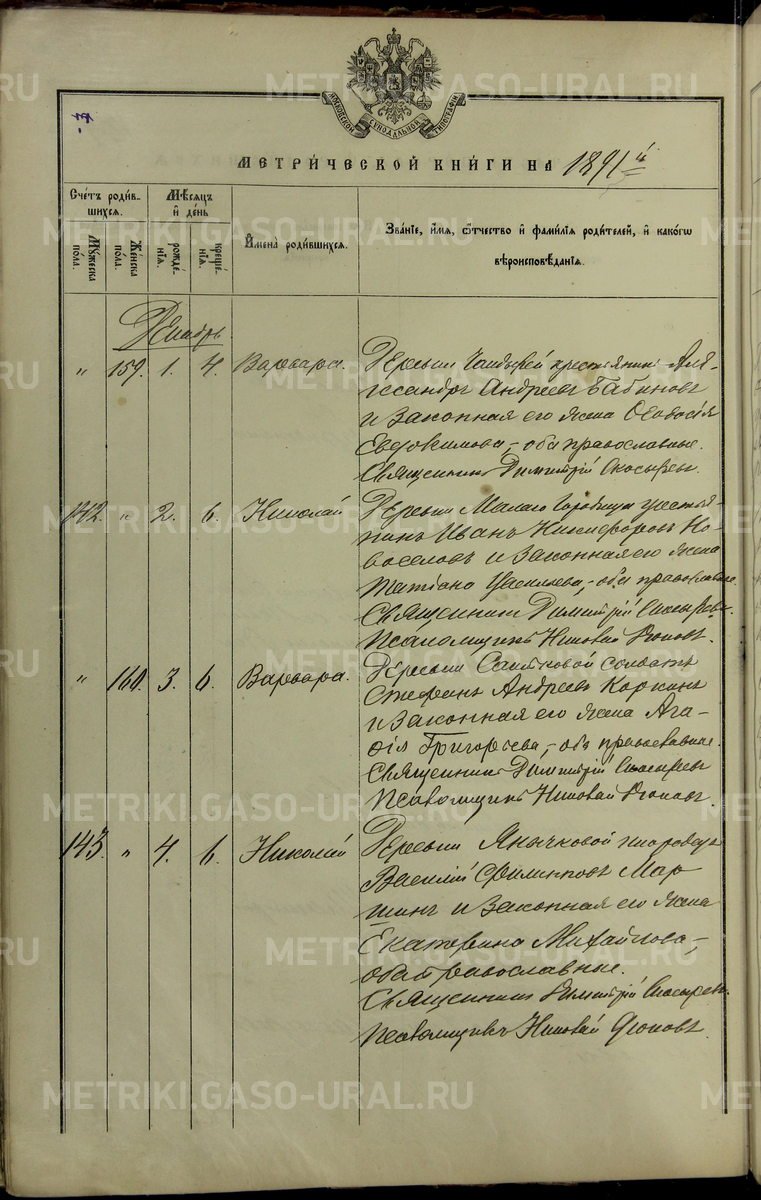 МОСКОВСКОЙ СѴНОДАЛЬНОЙ ТИПОГРАФІИ
МЕТРИ́ЧЕСКОЙ КНИ́ГИ НА 1891 й
Сче́тъ роди́в-
шихся.
Му́жеска
по́ла.
Же́нска
по́ла.
Мѣ́сяцъ
и҆ де́нь
рожде́-
нїя.
креще́-
нїя.
И҆мена̀ роди́вшихся.
Зва́нїе, и҆́мя, ѻ҆́тчество и҆ фами́лїя роди́телей, и҆ како́гѡ
вѣроисповѣ́данїя.
Декабрь
" 159. 1. 4. Варвара. Деревни крестьянинъ Алек-
сандръ Андреевъ Бабиновъ
и законная его жена Ѳеодосія
Евдокимова, – оба православные.
Священникъ Димитрій Скосыревъ.
142. " 2. 6. Николай Деревни Малаго Городища крестья-
нинъ Иванъ Никифоровъ Но-
воселовъ и законная его жена
Татіана – оба православные.
Священникъ Димитрій Скосыревъ.
Псаломщикъ Николай
" 160. 3. 6. Варвара. Деревни солдатъ
Стефанъ Андреевъ Коркинъ
и законная его жена Ага-
ѳія Григорьева, – оба православные.
Священникъ Димитрій Скосыревъ
Псаломщикъ Николай
143. " 4. 6. Николай Деревни Янычковой инородецъ
Василій Филипповъ Мар-
шинъ и законная его жена
Екатерина Михайлова, –
оба православные.
Священникъ Димитрій Скосыревъ.
Псаломщикъ Николай
METRIKI.GASO-URAL.RU